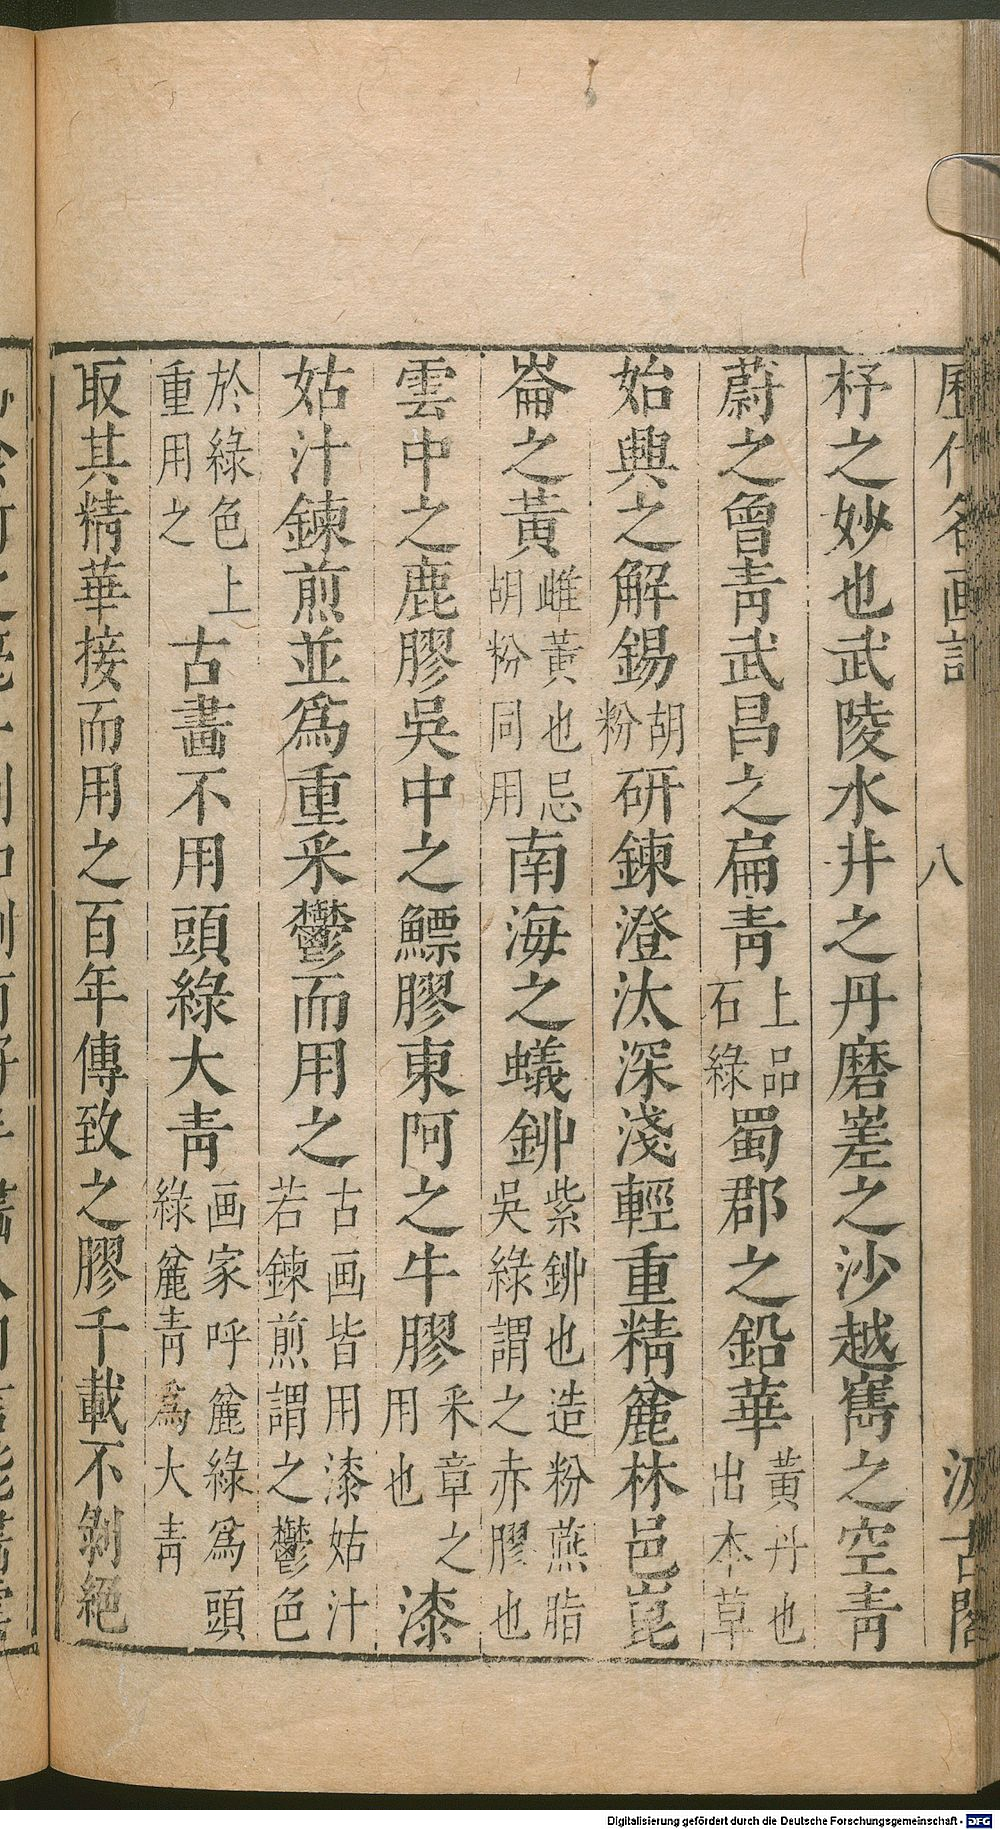 歷代名画記 八 汲古閣
杼之妙也武陵水井之丹磨嵯之沙越嶲之空靑
蔚之曾靑武昌之扁靑上品石綠蜀郡之鉛華黃丹也出本草
始興之解錫胡粉研鍊澄汰深淺輕重精麄林邑崑
崙之黃雌黃也忌胡粉同用南海之蟻鉚紫鉚也造粉燕脂吳綠謂之赤膠也
雲中之鹿膠吳中之鰾膠東阿之牛膠釆章之用也漆
姑汁鍊煎並爲重釆鬱而用之古画皆用漆姑汁若鍊煎謂之鬱色
於綠色上重用之古畵不用頭綠大靑画家呼麄綠爲頭綠麄靑爲大靑
取其精華接而用之百年傳致之膠千載不剝絕